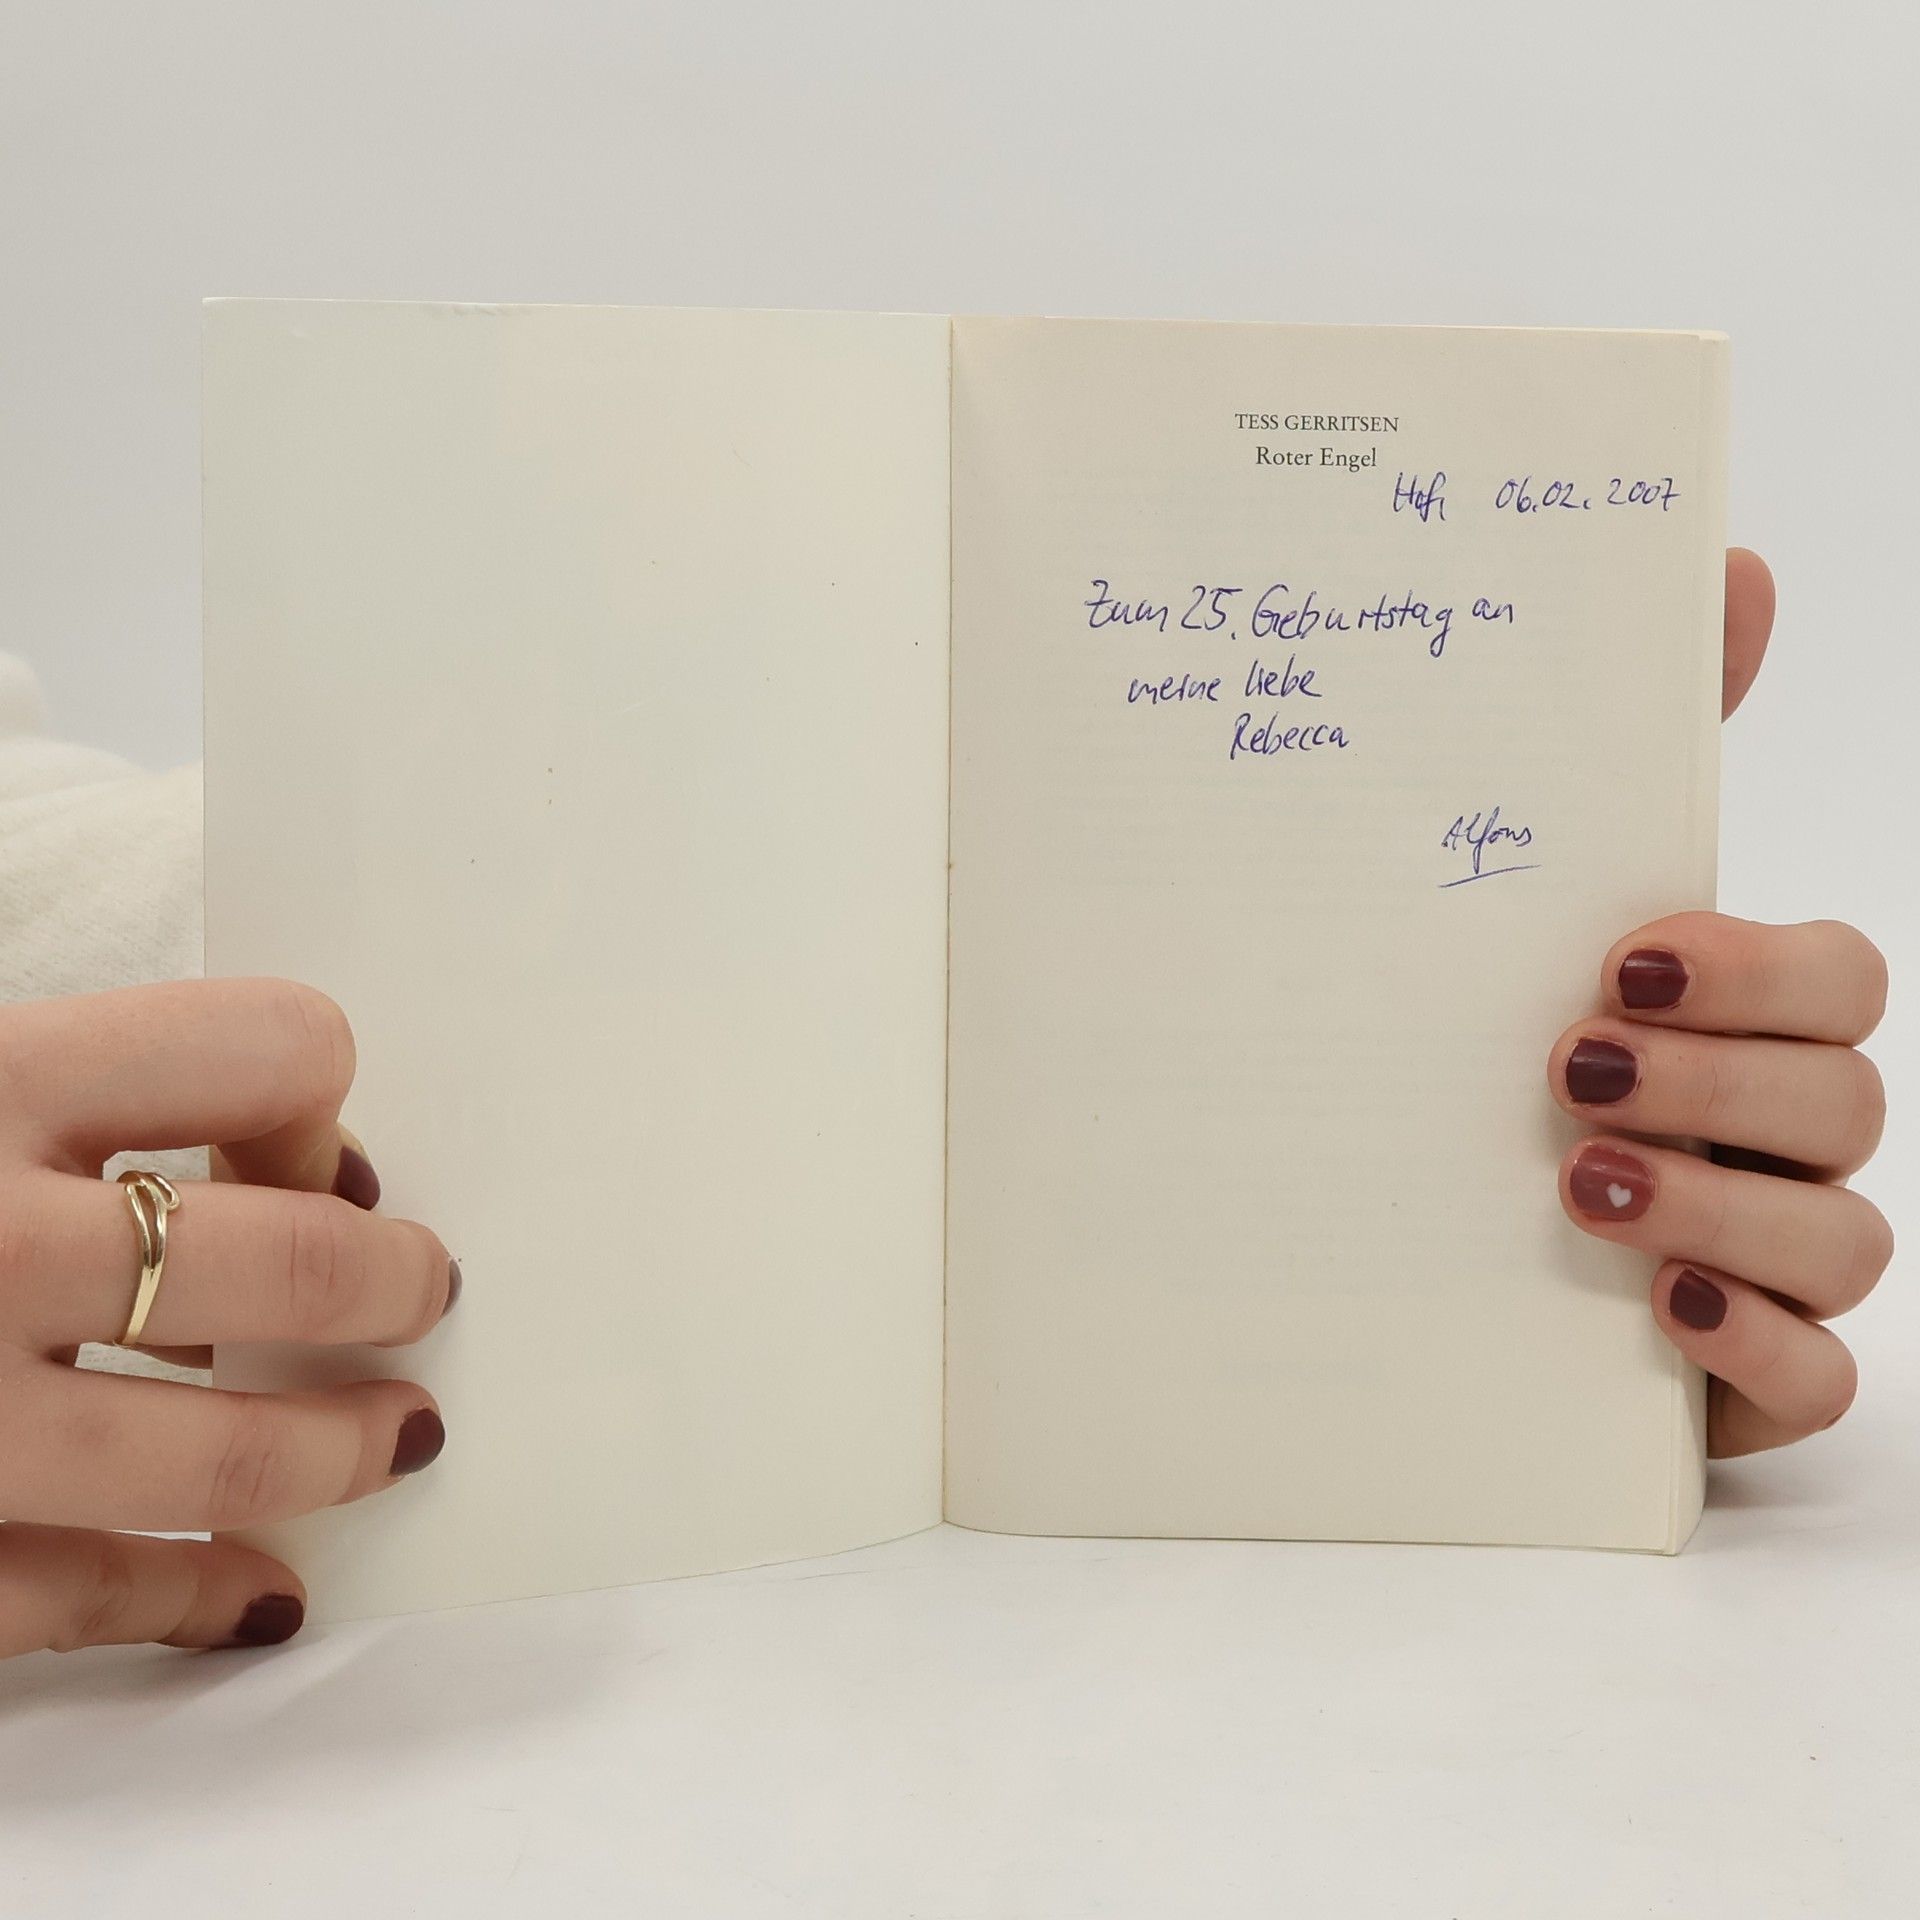 TESS GERRITSEN
Roter Engel
Hof, 06.02.2007
Zum 25. Geburtstag an
meine liebe
Rebecca
Alfons